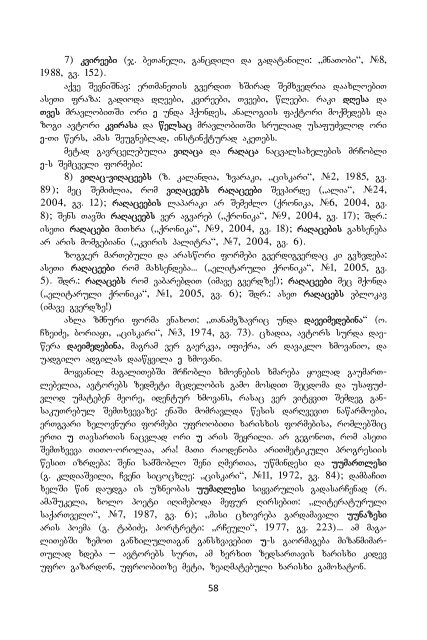 7) კვირეები (ჯ. ბეთანელი, განცდილი და გადატანილი: „მნათობი“, №8,
1988, გვ. 152).
აქვე შევნიშნავ: ერთმანეთის გვერდით ხშირად შემხვედრია დაახლოებით
ასეთი ფრაზა: გადიოდა დღეები, კვირეები, თვეები, წლეები. რაკი დღესა და
თვეს მრავლობითში ორი ე უნდა ჰქონდეს, ანალოგიის ფაქტორი მოქმედებს და
ზოგი ავტორი კვირასა და წელსაც მრავლობითში სრულიად უსაფუძვლოდ ორი
ე-თი წერს, ამას შეუგნებლად, ინსტინქტურად აკეთებს.
მეტად გავრცელებულია ვიღაცა და რაღაცა ნაცვალსახელების მრჩობლი
ე-ს შემცველი ფორმები:
8) ვიღაც-ვიღაცეებს (ზ. კალანდია, ზვარაკი, „ცისკარი“, №2, 1985, გვ.
89); მეც შემიძლია, რომ ვიღაცეებს რაღაცეები შევპირდე („ალია“, №24,
2004, გვ. 12); რაღაცეების ლაპარაკი არ შემეძლო (ქრონიკა, №6, 2004, გვ.
8); შენს თავში რაღაცეებს ვერ აგვარებ („ქრონიკა“, №9, 2004, გვ. 17); შდრ.:
ისეთი რაღაცები მითხრა („ქრონიკა“, №9, 2004, გვ. 18); რაღაცების გახსენება
არ არის მომგებიანი („კვირის პალიტრა“, №7, 2004, გვ. 6).
ზოგჯერ მართებული და არასწორი ფორმები გვერდიგვერდაც კი გვხვდება:
ასეთი რაღაცეები რომ მახსენდება... („ელიტარული ქრონიკა“, №1, 2005, გვ.
5). შდრ.: რაღაცებს რომ ვაბარებდით (იმავე გვერდზე!); რაღაცეები მეც მქონდა
(„ელიტარული ქრონიკა“, №1, 2005, გვ. 6); შდრ.: ასეთ რაღაცებს ვბლოკავ
(იმავე გვერდზე!)
ახლა ზმნური ფორმა ვნახოთ: „თანამგზავრიც უნდა დაეეიმედებინა“ (ო.
ჩხეიძე, ბორიაყი, „ცისკარი“, №3, 1974, გვ. 73). ცხადია, ავტორს სურდა დაე-
წერა დაეიმედებინა, მაგრამ ვერ გაერკვა, იფიქრა, არ დავაკლო ხმოვანიო, და
უადგილო ადგილას დააწყვილა ე ხმოვანი.
მოყვანილ მაგალითებში მრჩობლი ხმოვნების ხმარება ყოვლად გაუმართ-
ლებელია, ავტორებს ზედმეტი მცდელობის გამო მოსდით შეცდომა და უსაფუძ-
ვლოდ უმატებენ მეორე, იდენტურ ხმოვანს, რასაც ვერ ვიტყვით შემდეგ გან-
საკუთრებულ შემთხვევაზე: ენაში მომრავლდა წესის დარღვევით ნაწარმოები,
ერთგვარი ხელოვნური ფორმები უფროობითი ხარისხის ფორმებისა, რომლებშიც
ერთი უ თავსართის ნაცვლად ორი უ არის შეყრილი. არ გეგონოთ, რომ ასეთი
შემთხვევა თითო-ოროლაა, არა! მათი რაოდენობა არითმეტიკული პროგრესიის
წესით იზრდება: შენი სამშობლო შენი ღმერთია, უწმინდესი და უუმართლესი
(გ. კლდიაშვილი, ჩვენი სიცოცხლე: „ცისკარი“, №11, 1972, გვ. 84); დამბაჩით
ხელში წინ დაუდგა ის უზნეობას უუმაღლესი სიყვარულის გადასარჩენად (რ.
ამაშუკელი, ხოლო პოეტი იღიმებოდა მეფურ ღირსებით: „ლიტერატურული
საქართველო“, №7, 1987, გვ. 6); „მისი ცხოვრება გარდამავალი უუნაზესი
არის პოემა (გ. ტაბიძე, პორტრეტი: „რჩეული“, 1977, გვ. 223)... ამ მაგა-
ლითებში ზემოთ განხილულთაგან განსხვავებით უ-ს გაორმაგება მიზანმიმარ-
თულად ხდება – ავტორებს სურთ, ამ ხერხით ზედსართავის ხარისხი კიდევ
უფრო გაზარდონ, უფროობითზე მეტი, ზეაღმატებული ხარისხი გამოხატონ.
58